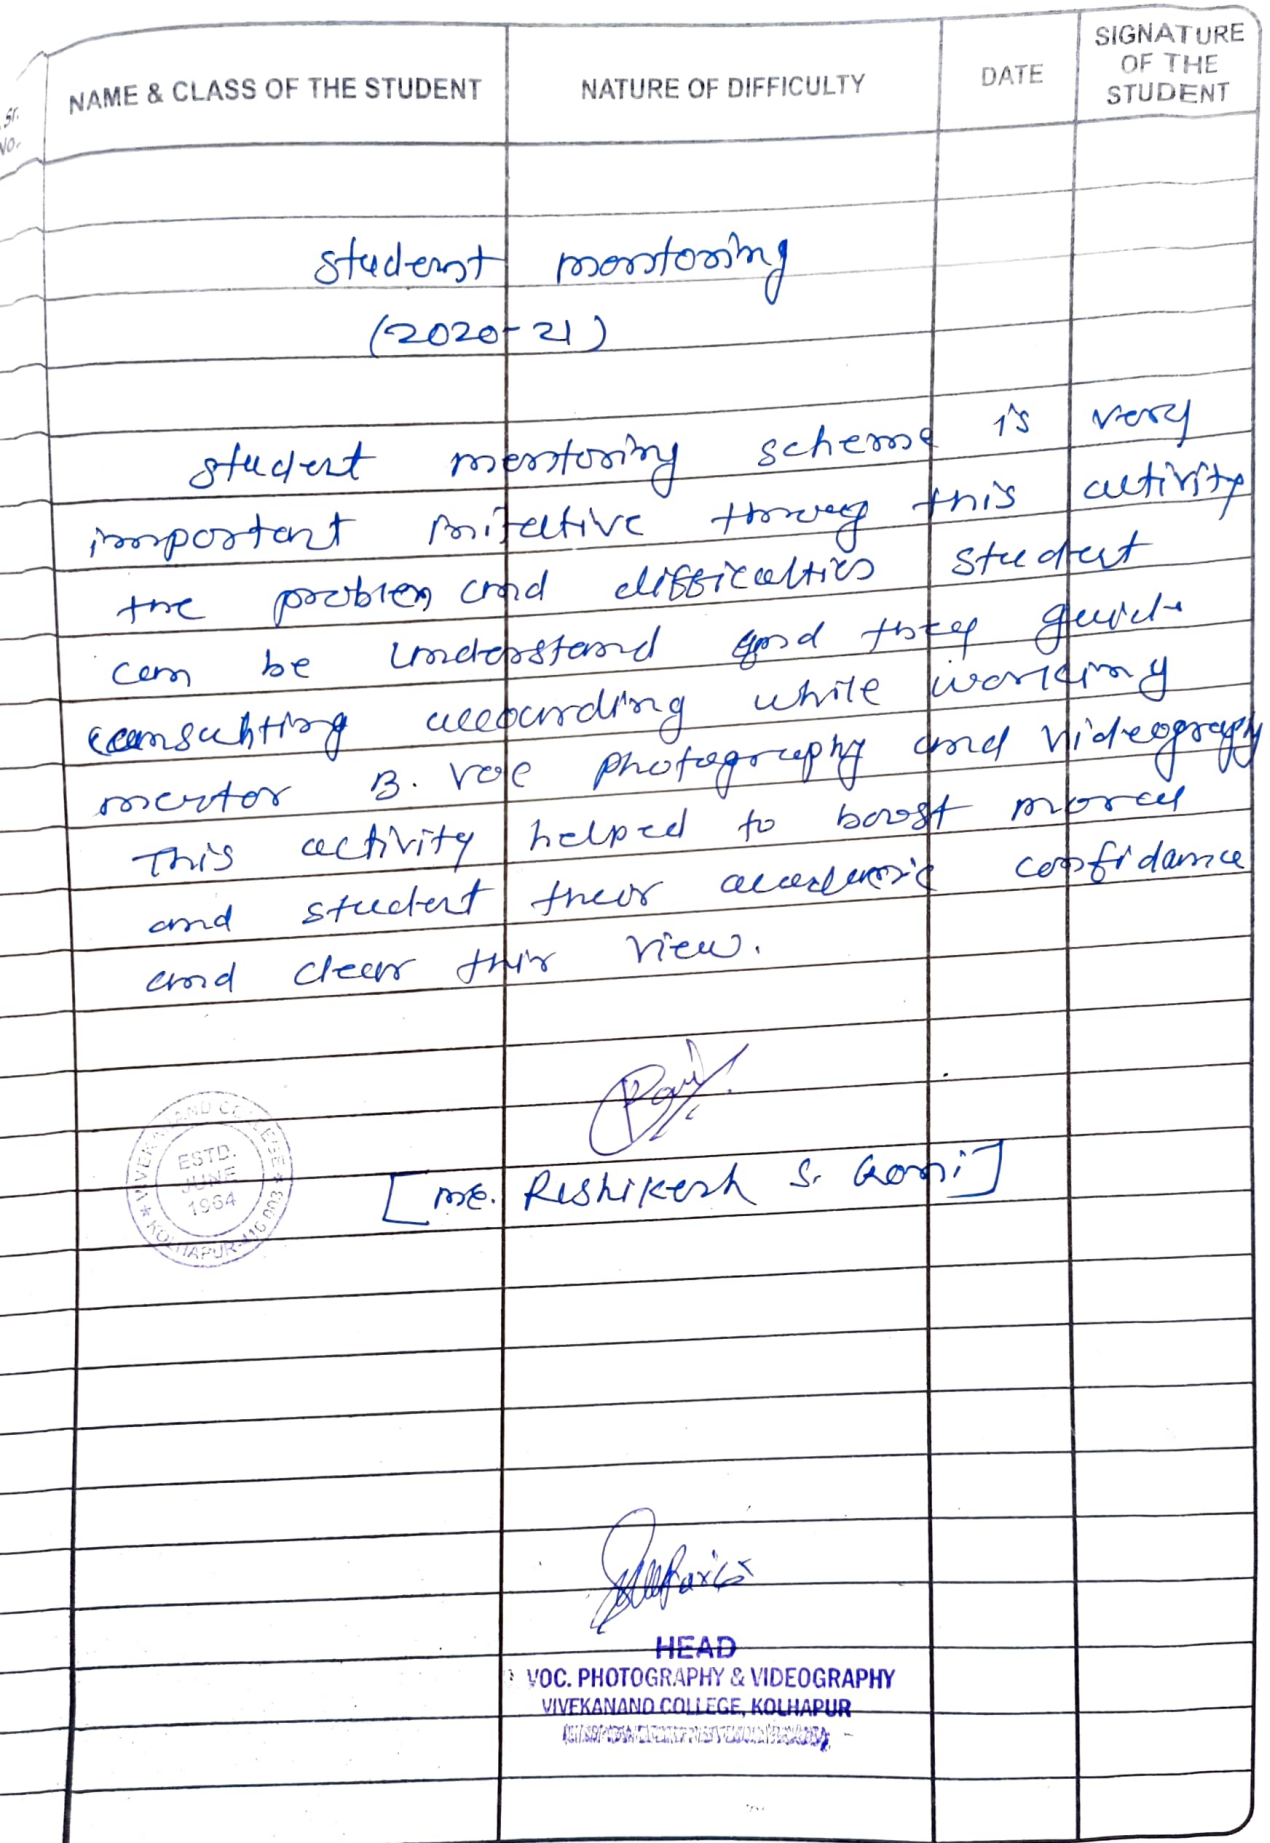 Sr. No.
NAME & CLASS OF THE STUDENT
NATURE OF DIFFICULTY
DATE
SIGNATURE OF THE STUDENT
student mentoring
(2020-21)
student mentoring scheme is very
important throug this activity
the problem and difficulties student
can be understand and they guide
according while working
mentor B. Voc photography and videography
This activity helped to boost moral
and student their academic confidance
and clear thir view.
VIVEKANAND COLLEGE
ESTD.
JUNE
1964
KOLHAPUR-416 003
Rishikesh S.
HEAD
VOC. PHOTOGRAPHY & VIDEOGRAPHY
VIVEKANAND COLLEGE, KOLHAPUR